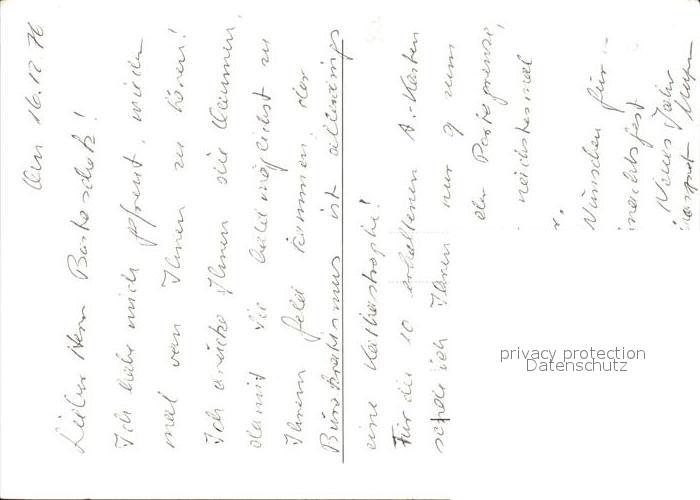 den 16.12.76
Lieber Herr
Ich habe mich gefreut, wieder
mal von Ihnen zu hören!
Ich drücke Ihnen die Daumen,
damit Sie bald möglichst zu
Ihrem Geld kommen, der
Bürokratismus ist allerdings
eine Katastrophe!
Für die 10 erhaltenen A.-Karten
schicke ich Ihnen nur 9 zum
der Portogrenze,
nächstesmal
Wünschen für
nachtsfest
Neues Jahr
privacy protection
Datenschutz